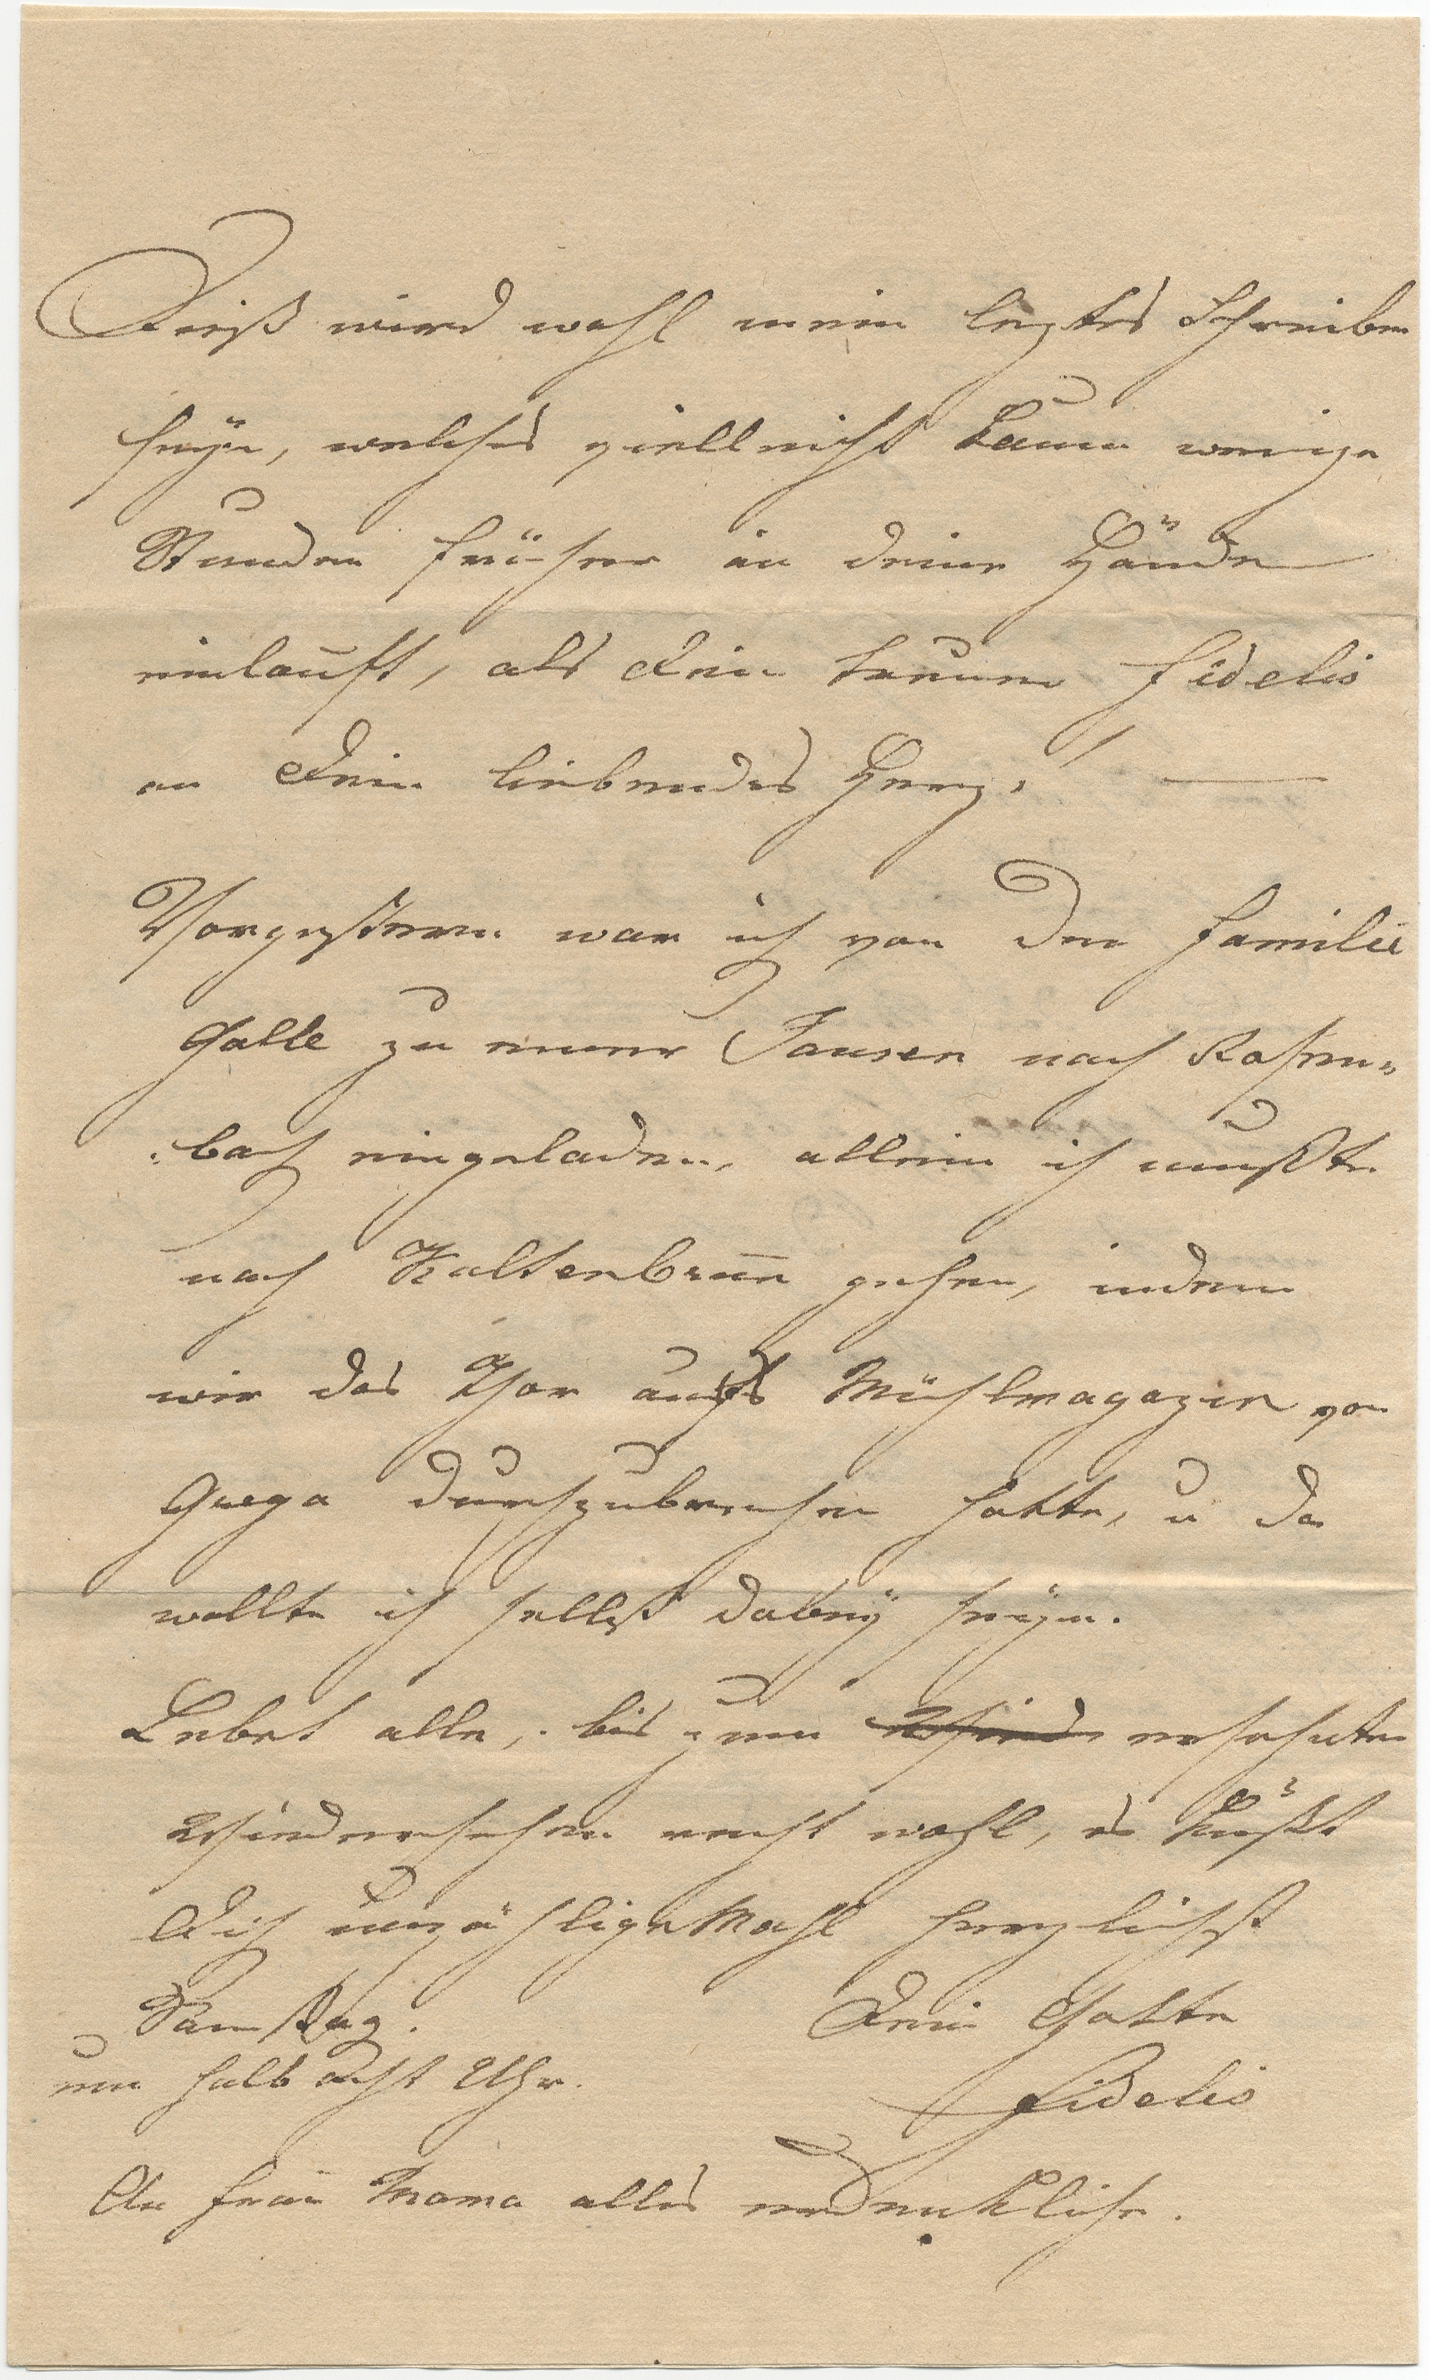 Dieß wird wohl mein leztes Schreiben
seÿn, welches vielleicht kaum wenige
Stunden früher in deine Hände
einlauft, als dein treuer Fidelis
an dein liebendes Herz! —
Vorgestern war ich von der Familie
Galle zu einer Jausen nach Rosen=
=bach eingeladen, allein ich mußte
nach Kaltenbrun gehen, indem
wir das Thor aufs Mühlmagazin von
durchzubrechen hatte, u da
wollte ich selbst dabeÿ seÿn.
Lebet alle, bis zum Wied ersehnten
Wiedersehen recht wohl, es küßt
Dich unzähligemahl herzlichst
Samstag. Dein Gatte
um halb acht Uhr. Fidelis
An Frau Mama alles erdenkliche.